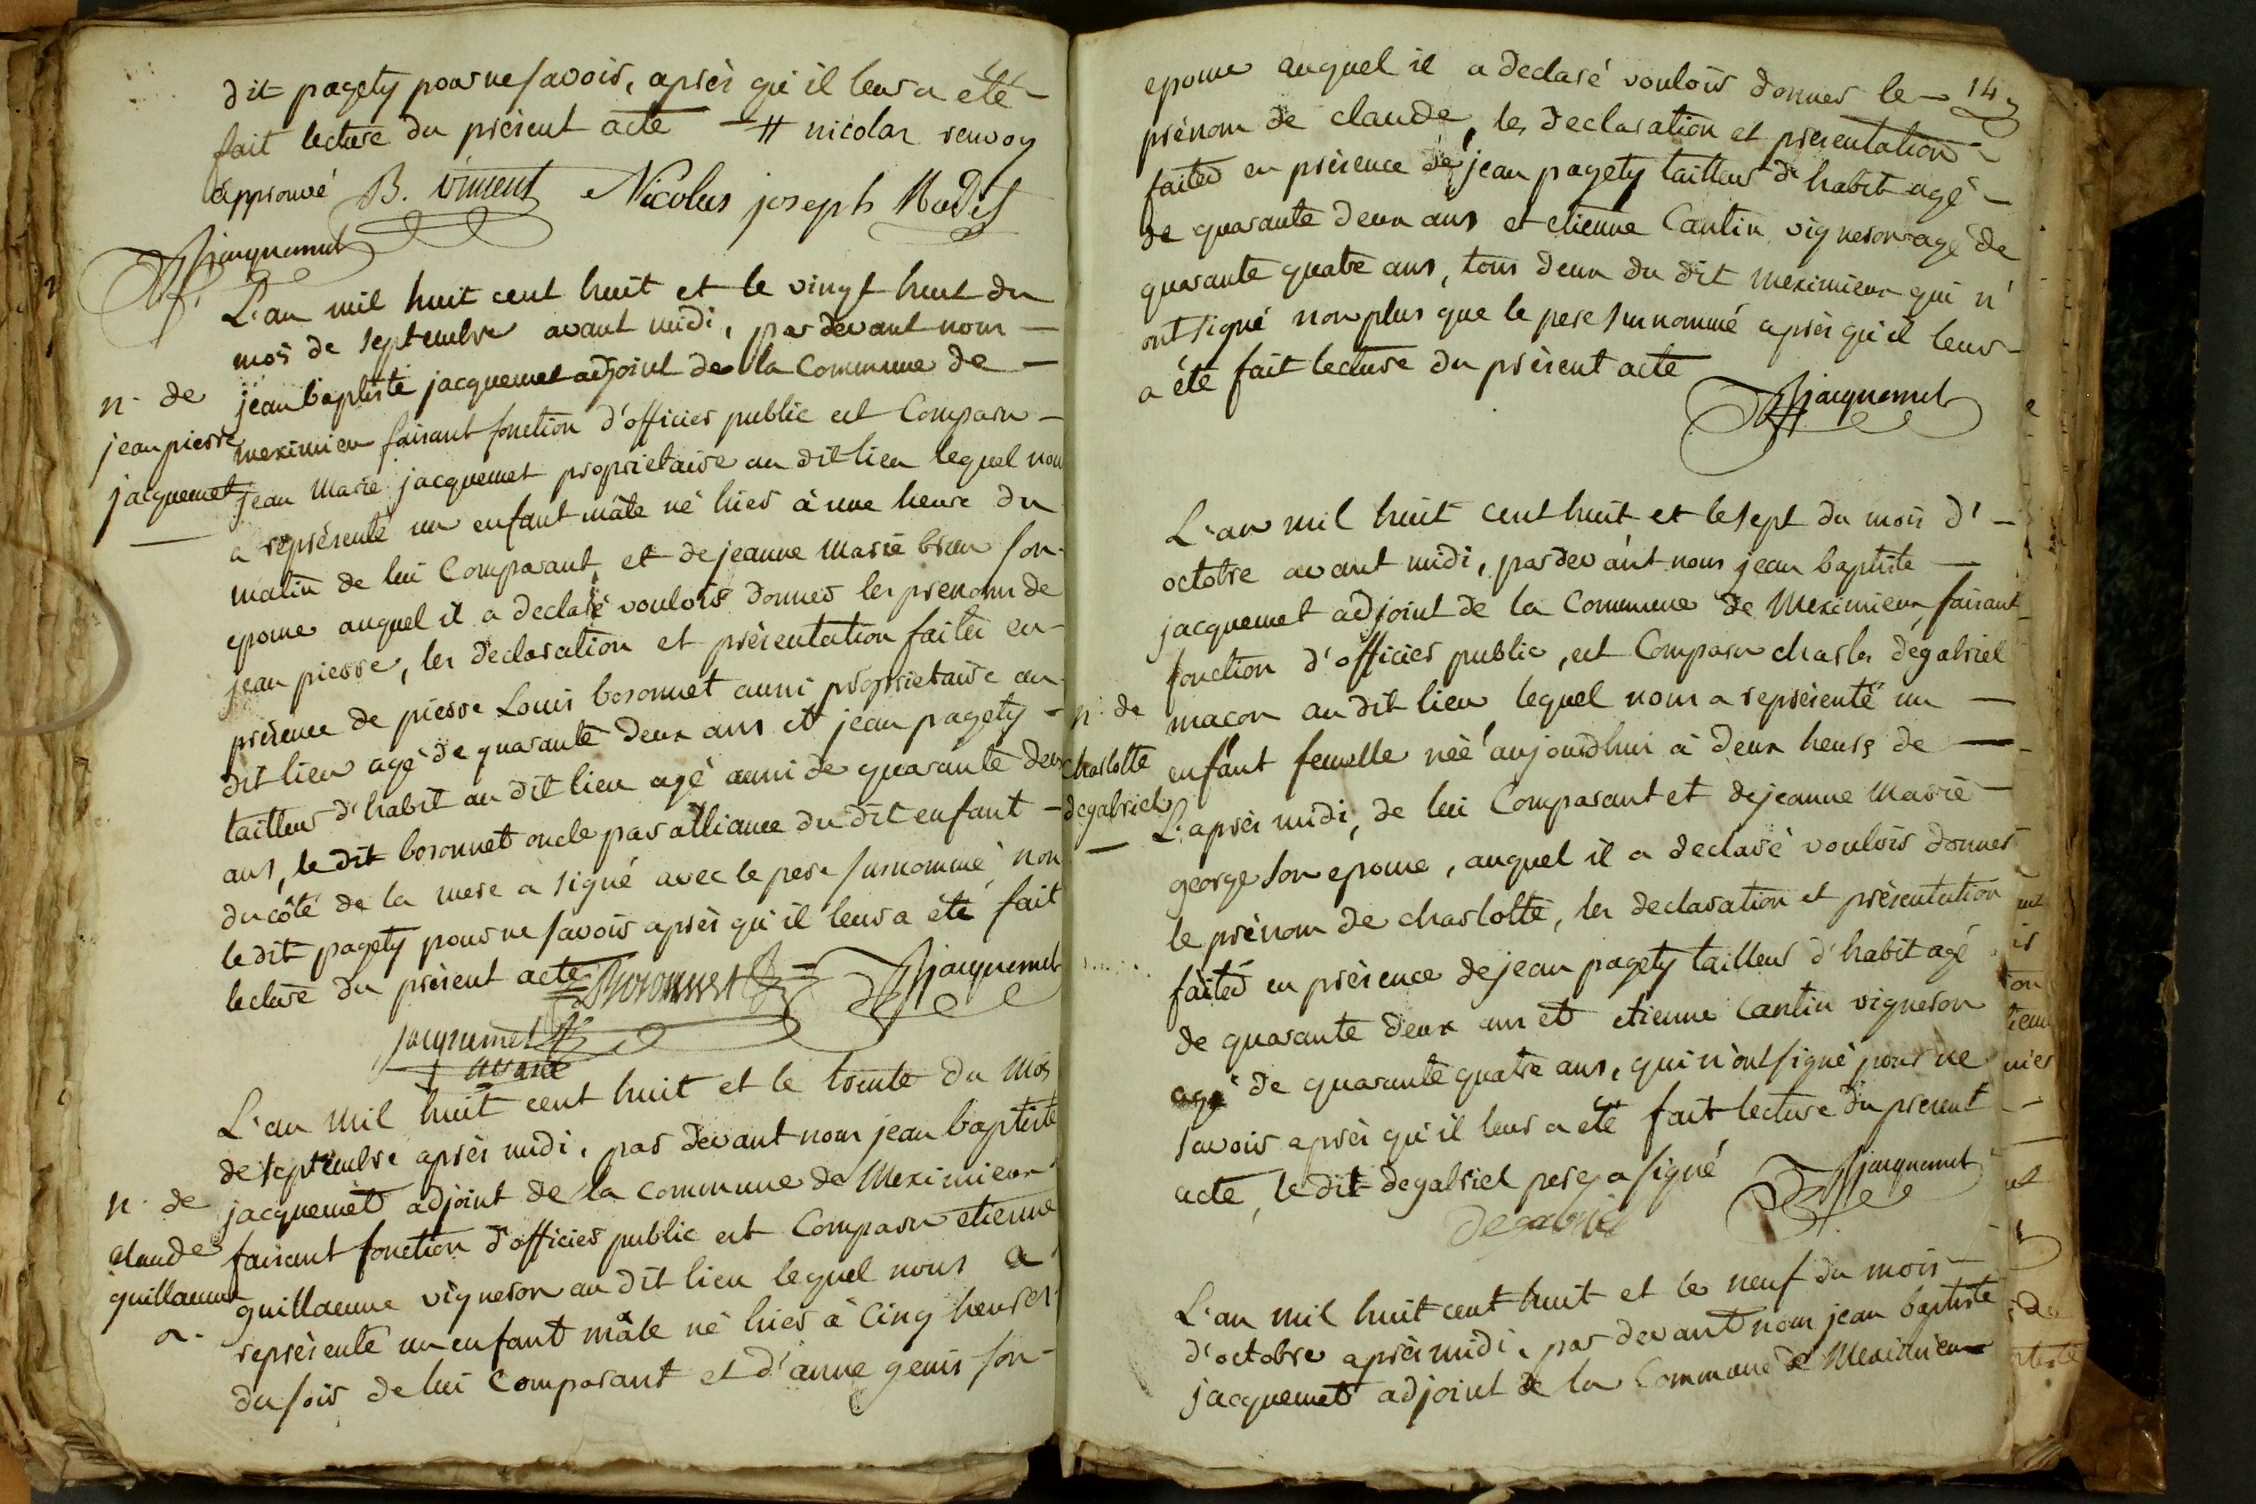 dit pagety pour ne savoir, après qu'il leur a été –
fait lecture du présent acte – # nicolas renvoy
approuvé B. vincent Nicolas joseph Rodet
jacquemet
L'an mil huit cent huit et le vingt huit du
mois de septembre avant midi, pardevant nous –
n. de
jean pierre
jacquemet
jean baptiste jacquemet adjoint de la Commune de –
meximieux faisant fonction d'officier public est Comparu –
jean Marie jacquemet proprietaire au dit lieu lequel nous
a représenté un enfant mâle né hier à une heure du
matin de lui Comparant et de jeanne Marie brun son
epouse auquel il a declaré vouloir donner les prenoms de
jean pierre, les declaration et présentation faites en
présence de pierre Louis boronnet aussi proprietaire au
dit lieu agé de quarante deux ans et jean pagety –
tailleur d'habit au dit lieu agé aussi de quarante deux
ans, le dit boronnet oncle par alliance du dit enfant –
du côté de la mere a signé avec le pere surnommé, non
le dit pagety pour ne savoir après qu'il leur a été fait
lecture du présent acte Boronnet jacquemet
jacquemet
L'an mil huit cent huit et le trente du mois
de septembre après midi, par devant nous jean baptiste
n. de
claude
guillaume
jacquemet adjoint de la commune de Meximieux
faisant fonction d'officier public est Comparu etienne
guillaume vigneron au dit lieu lequel nous a
représenté un enfant mâle né hier à Cinq heures
du soir de lui Comparant et d'anne genis son –
14
epouse auquel il a declaré vouloir donner le –
prénom de claude, les declaration et présentation –
faites en présence de jean pagety tailleur d'habit agé –
de quarante deux ans et etienne Cantin vigneron agé de
quarante quatre ans, tous deux du dit meximieux qui n'
ont signé non plus que le pere surnommé après qu'il leur –
a été fait lecture du présent acte
jacquemet
L'an mil huit cent huit et le sept du mois d' –
octobre avant midi, pardevant nous jean baptiste –
jacquemet adjoint de la Commune de Meximieux, faisant
fonction d'officier public, est Comparu charles degabriel
n. de
charlotte
degabriel
macon au dit lieu lequel nous a représenté un –
enfant femelle née aujourdhui à deux heures de –
L'après midi, de lui Comparant et de jeanne Marie –
george son epouse, auquel il a declaré vouloir donner
le prénom de charlotte, les declaration et présentation
faites en présence de jean pagety tailleur d'habit agé
de quarante deux ans et etienne Cantin vigneron
agé de quarante quatre ans, qui n'ont signé pour ne
savoir après qu'il leur a été fait lecture du présent
acte, le dit degabriel pere a signé jacquemet
degabriel
L'an mil huit cent huit et le neuf du mois –
d'octobre après midi, par devant nous jean baptiste
jacquemet adjoint de la Commune de Meximieux